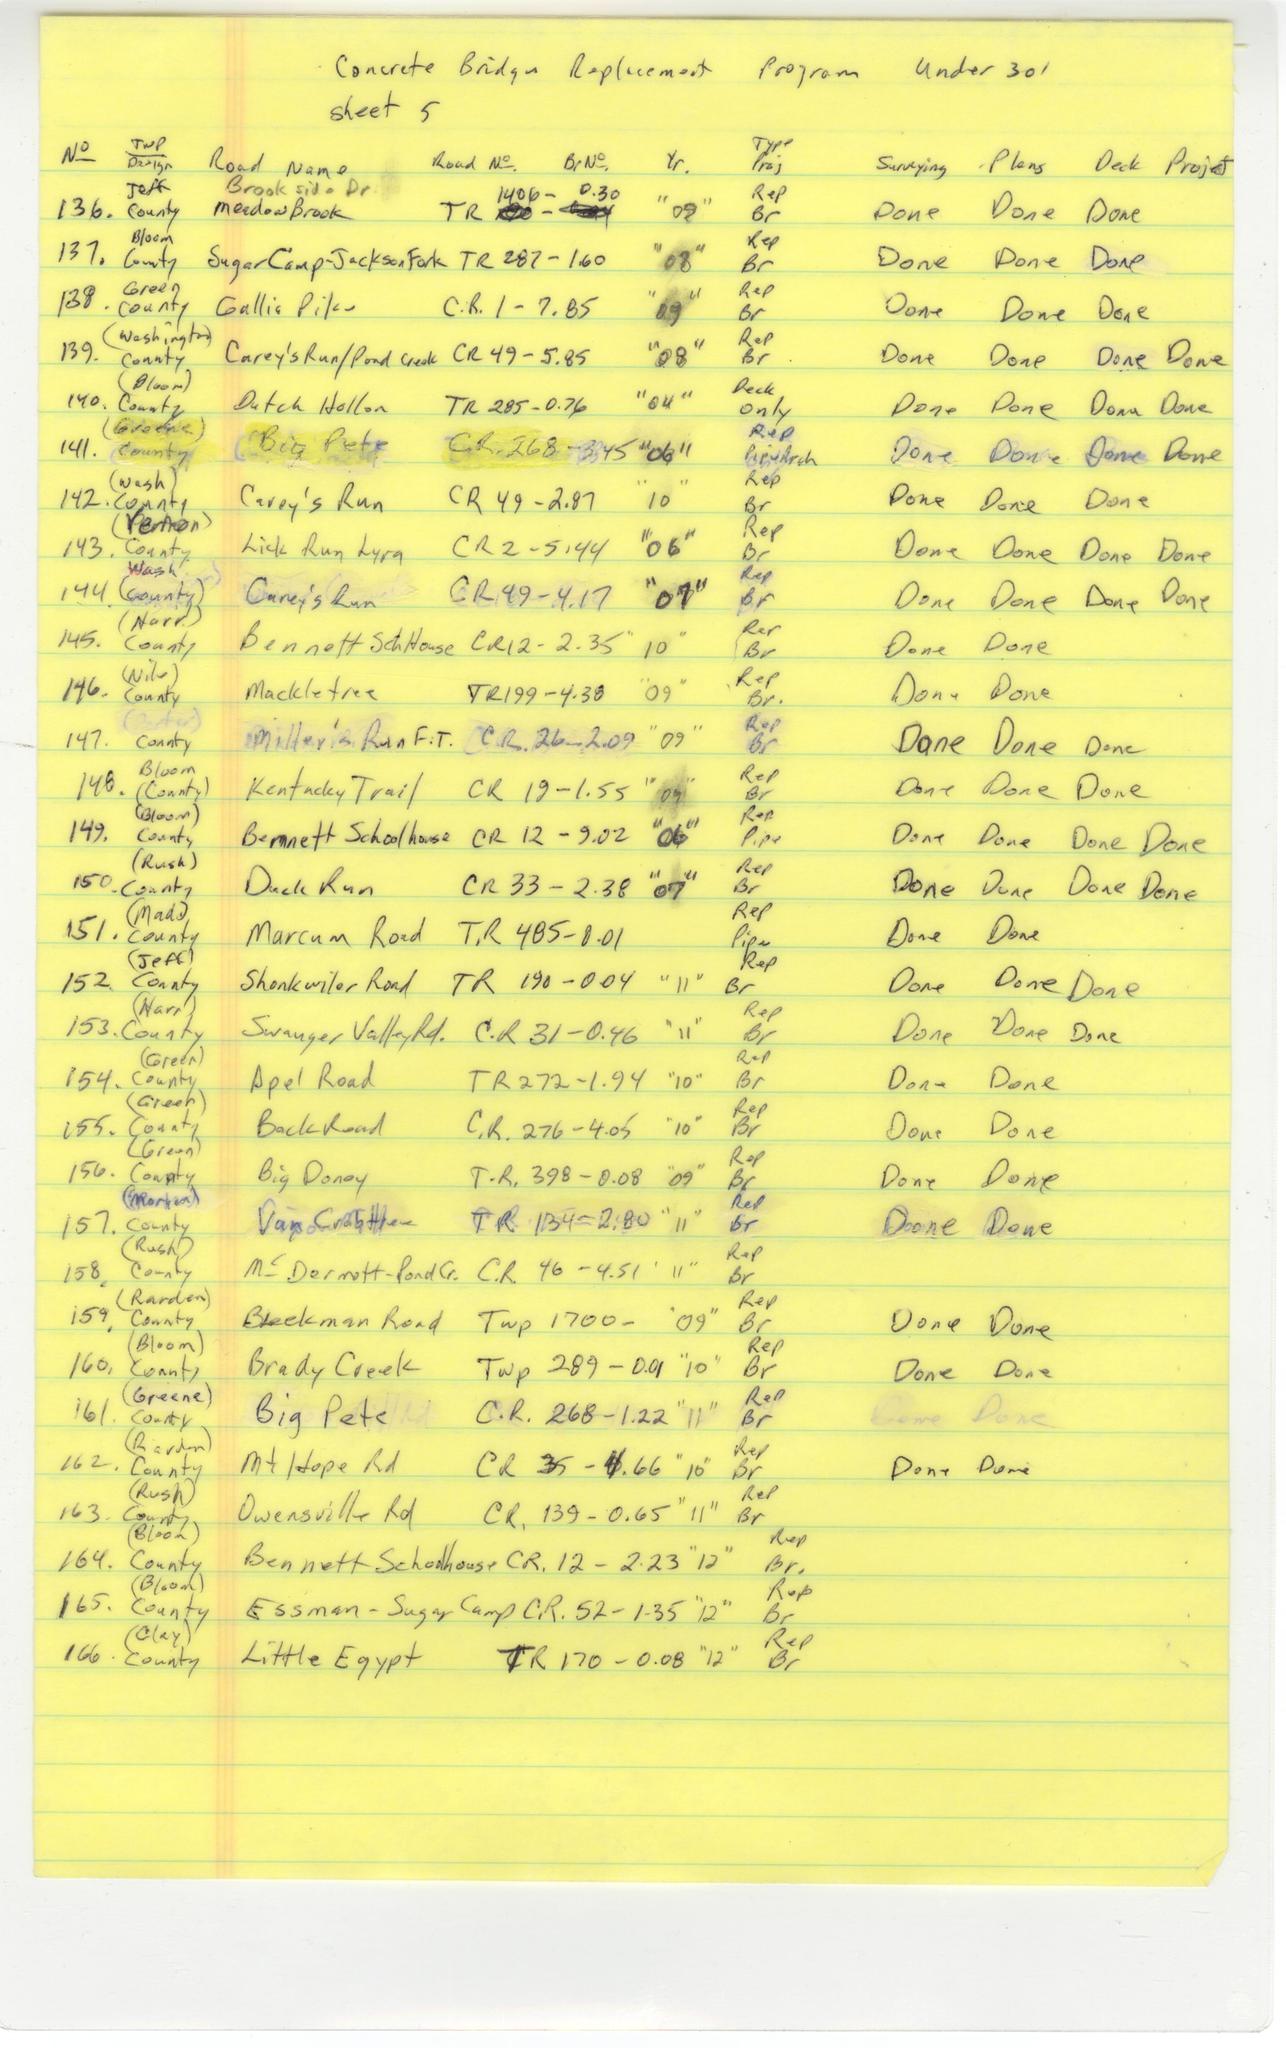 Concrete Bridge Replacement Program Under 30'
Sheet 5
No Twp Design Road Name Road No. Br No. Yr. Type Proj Surveying Plans Deck Project
Jeff Brookside Dr. 1406 - 0.30 Rep
136. County MeadowBrook TR "09" Br Done Done Done
Bloom Rep
137. County SugarCamp-JacksonFork TR 287-1.60 "08" Br Done Done Done
Green Rep
138. County Gallia Pike C.R. 1-7.85 "09" Br Done Done Done
(Washington) Rep
139. County Carey's Run/Pond Creek CR 49-5.85 "08" Br. Done Done Done Done
(Bloom) Deck
140. County Dutch Hollow TR 285-0.76 "04" only Done Done Done Done
(Greene) Rep
141. County Big Pete CR. 268-3.45 "06" PipeArch Done Done Done Done
(Wash) Rep
142. County Carey's Run CR 49-2.87 "10" Br Done Done Done
(Vernon) Rep
143. County Lick Run Lyra CR 2-5.44 "06" Br Done Done Done Done
Wash Rep
144. (County) Carey's Run CR 49-4.17 "07" Br Done Done Done Done
(Harr.) Rep
145. County Bennett SchHouse CR12-2.35 "10" Br Done Done
(Nile) Rep
146. County Mackletree TR199-4.38 "09" Br. Done Done
(Porter) Rep
147. County Miller's Run F.T. C.R. 26-2.09 "09" Br Done Done Done
Bloom Rep
148. (County) Kentucky Trail CR 19-1.55 "09" Br Done Done Done
(Bloom) Rep
149. County Bennett Schoolhouse CR 12-9.02 "06" Pipe Done Done Done Done
(Rush) Rep
150. County Duck Run CR 33-2.38 "07" Br Done Done Done Done
(Mad) Rep
151. County Marcum Road T.R 485-0.01 Pipe Done Done
(Jeff) Rep
152. County Shonkwiler Road TR 190-0.04 "11" Br Done Done Done
(Harr) Rep
153. County Swauger Valley Rd. C.R 31-0.46 "11" Br Done Done Done
(Green) Rep
154. County Apel Road TR 272-1.94 "10" Br Done Done
(Green) Rep
155. County Back Road C.R. 276-4.05 "10" Br Done Done
(Green) Rep
156. County Big Doney T.R. 398-0.08 "09" Br Done Done
(Morgan) Rep
157. County TR 134-2.80 "11" Br Done Done
(Rush) Rep
158. County Mc.Dermott-Pond Cr. C.R. 46-4.51 "11" Br
(Rarden) Rep
159. County Bleekman Road Twp 1700- "09" Br Done Done
(Bloom) Rep
160. County Brady Creek Twp 289-0.01 "10" Br Done Done
(Greene) Rep
161. County Big Pete C.R. 268-1.22 "11" Br Done Done
(Rarden) Rep
162. County Mt Hope Rd CR 35-4.66 "10" Br Done Done
(Rush) Rep
163. County Owensville Rd CR. 139-0.65 "11" Br
(Bloom) Rep
164. County Bennett Schoolhouse CR. 12-2.23 "12" Br.
(Bloom) Rep
165. County Essman-Sugar Camp C.R. 52-1.35 "12" Br
(Clay) Rep
166. County Little Egypt TR 170-0.08 "12" Br